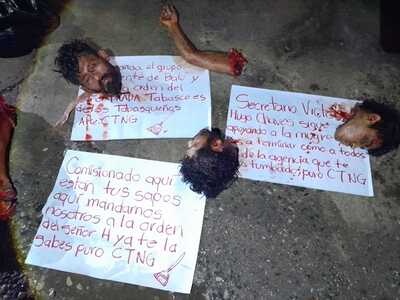 manda el grupo
ente de Balú y
a orden del
BARREDORA Tabasco es
de los Tabasqueños
CTNG
Secretario Victor
Hugo Chaves sigue
apoyando a la mugre
a terminar como a todos
de la agencia que te
tumbado puro CTNG
Comisionado aqui
estan tus sapos
aqui mandamos
nosotros a la orden
del señor H ya te la
sabes puro CTNG